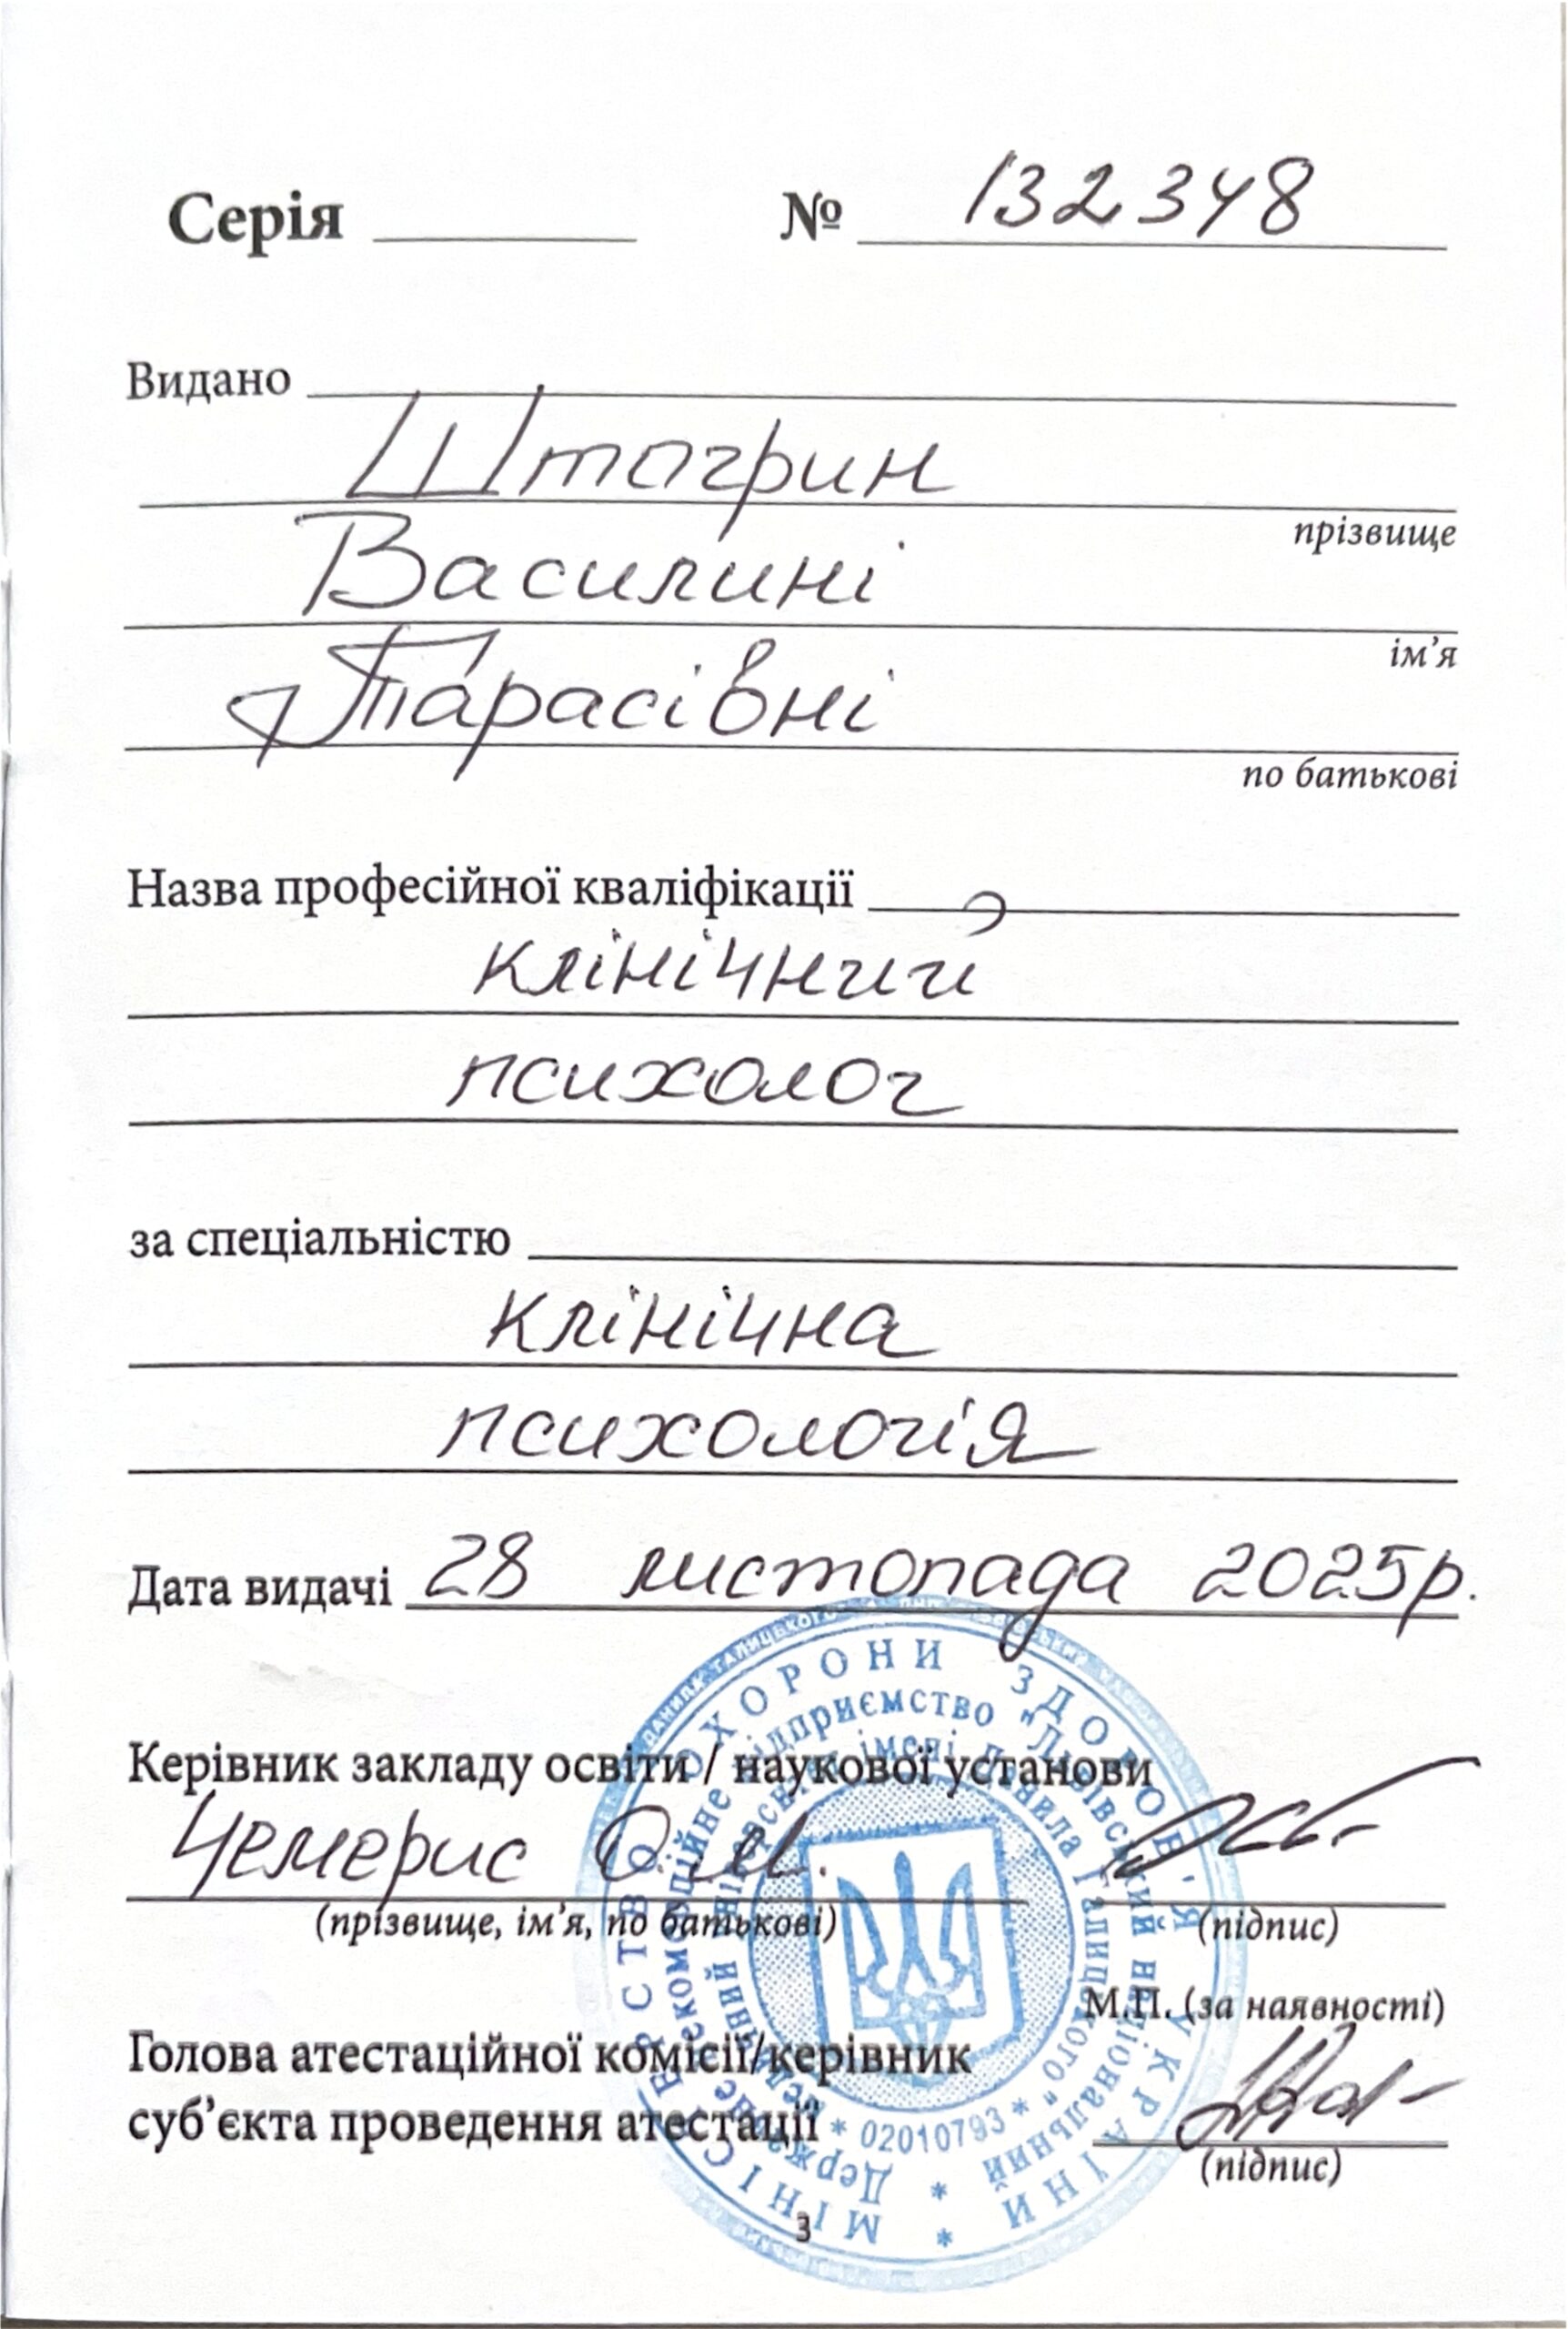 Серія № 132348
Видано
Штогрин
прізвище
Василині
ім’я
Тарасівні
по батькові
Назва професійної кваліфікації
клінічний
психолог
за спеціальністю
клінічна
психологія
Дата видачі 28 листопада 2025р.
Керівник закладу освіти / наукової установи
Чемерис О.М.
(прізвище, ім’я, по батькові) (підпис)
М.П. (за наявності)
Голова атестаційної комісії/керівник
суб’єкта проведення атестації
(підпис)
3
МІНІСТЕРСТВО ОХОРОНИ ЗДОРОВ'Я УКРАЇНИ *
Державне некомерційне підприємство "Львівський національний *
медичний університет імені Данила Галицького"
* 02010793 *